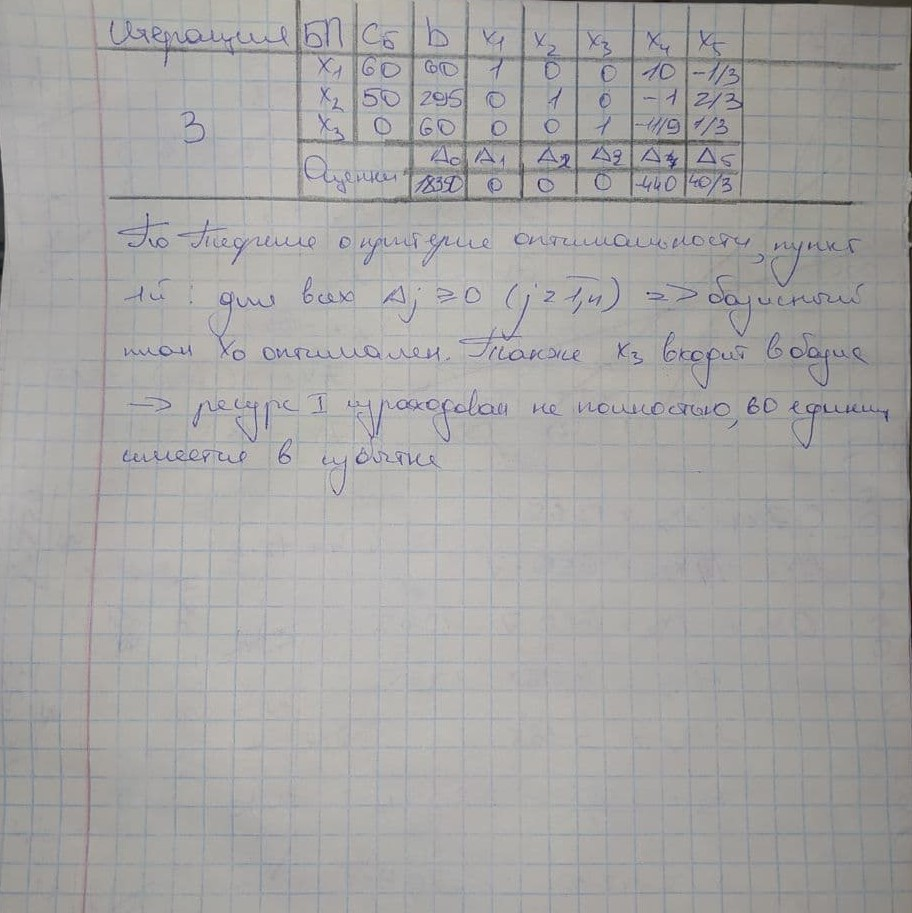 Итерация БП Cб b x1 x2 x3 x4 x5
x1 60 60 1 0 0 10 -1/3
3 x2 50 295 0 1 0 -1 2/3
x3 0 60 0 0 1 -11/9 1/3
Оценки Δ0 Δ1 Δ2 Δ2 Δ4 Δ5
18350 0 0 0 -440 40/3
По Теореме о критерие оптимальности, пункт
1й: для всех Δj ≥ 0 (j = 1,n) => базисный
план X0 оптимален. Также x3 входит в базис
-> ресурс I израсходован не полностью, 60 единиц
имеется в избытке